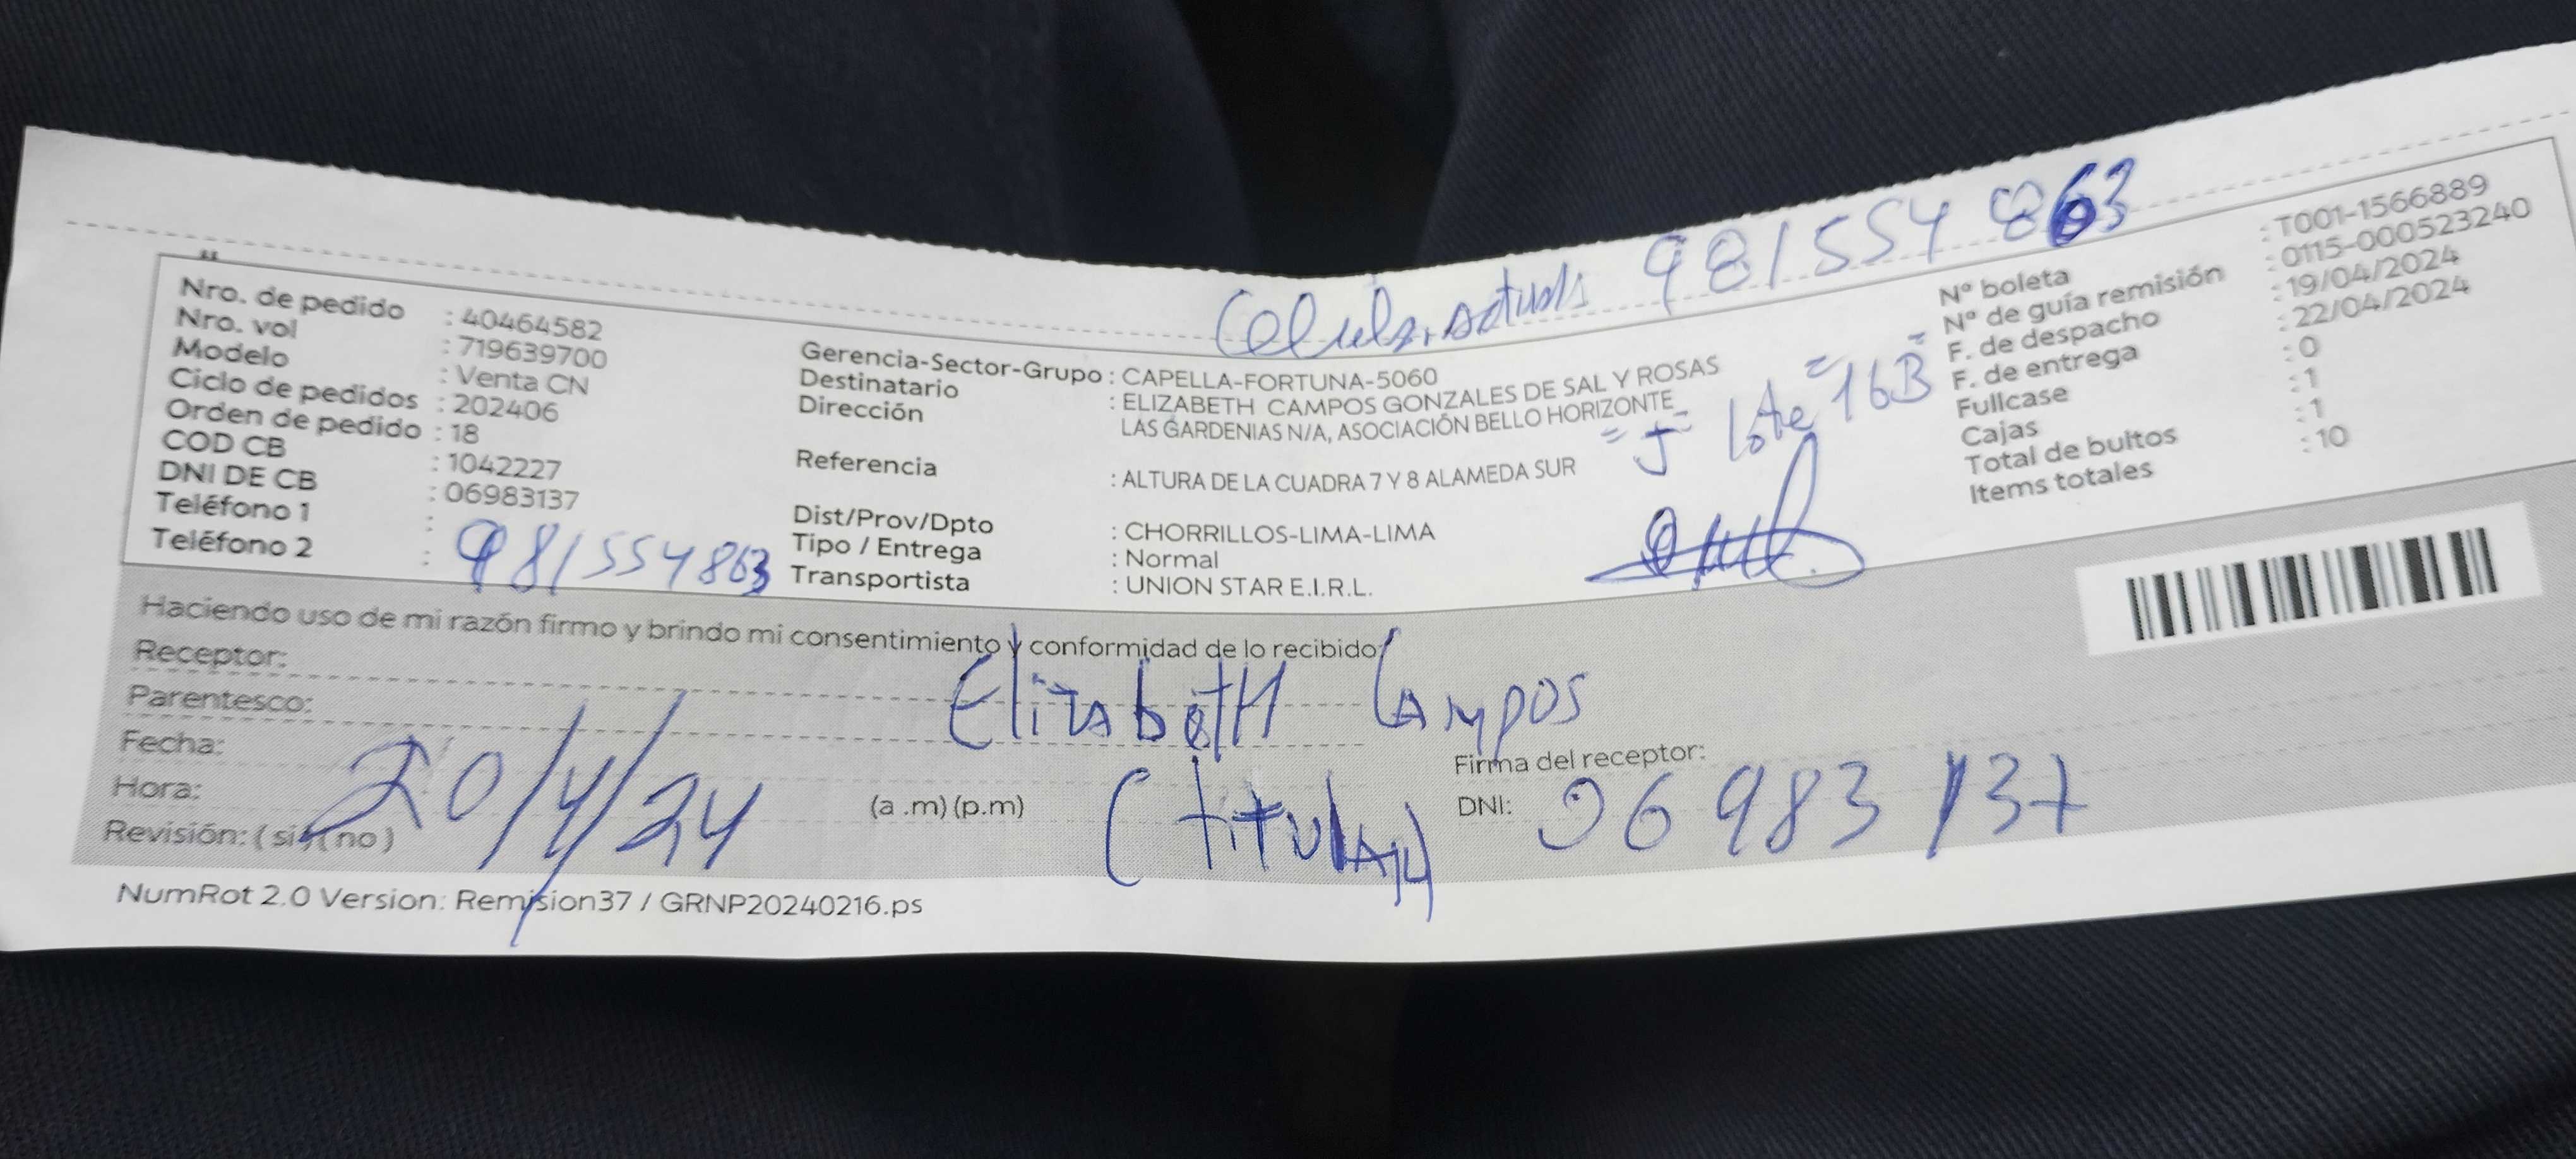 Celular actual 981554863
Nro. de pedido : 40464582
Nro. vol : 719639700
Modelo : Venta CN
Ciclo de pedidos : 202406
Orden de pedido : 18
COD CB : 1042227
DNI DE CB : 06983137
Teléfono 1 :
Teléfono 2 : 981554863
Gerencia-Sector-Grupo : CAPELLA-FORTUNA-5060
Destinatario : ELIZABETH CAMPOS GONZALES DE SAL Y ROSAS
Dirección LAS GARDENIAS N/A, ASOCIACIÓN BELLO HORIZONTE
"J" lote "16B"
Referencia : ALTURA DE LA CUADRA 7 Y 8 ALAMEDA SUR
Dist/Prov/Dpto : CHORRILLOS-LIMA-LIMA
Tipo / Entrega : Normal
Transportista : UNION STAR E.I.R.L.
Nº boleta : T001-1566889
Nº de guía remisión : 0115-000523240
F. de despacho : 19/04/2024
F. de entrega : 22/04/2024
Fullcase : 0
Cajas : 1
Total de bultos : 1
Items totales : 10
Haciendo uso de mi razón firmo y brindo mi consentimiento y conformidad de lo recibido:
Receptor: Elizabeth Campos
Parentesco: (titular)
Fecha: 20/4/24
Hora: (a .m) (p.m)
Revisión: ( si ) ( no )
Firma del receptor:
DNI: 06983137
NumRot 2.0 Version: Remision37 / GRNP20240216.ps